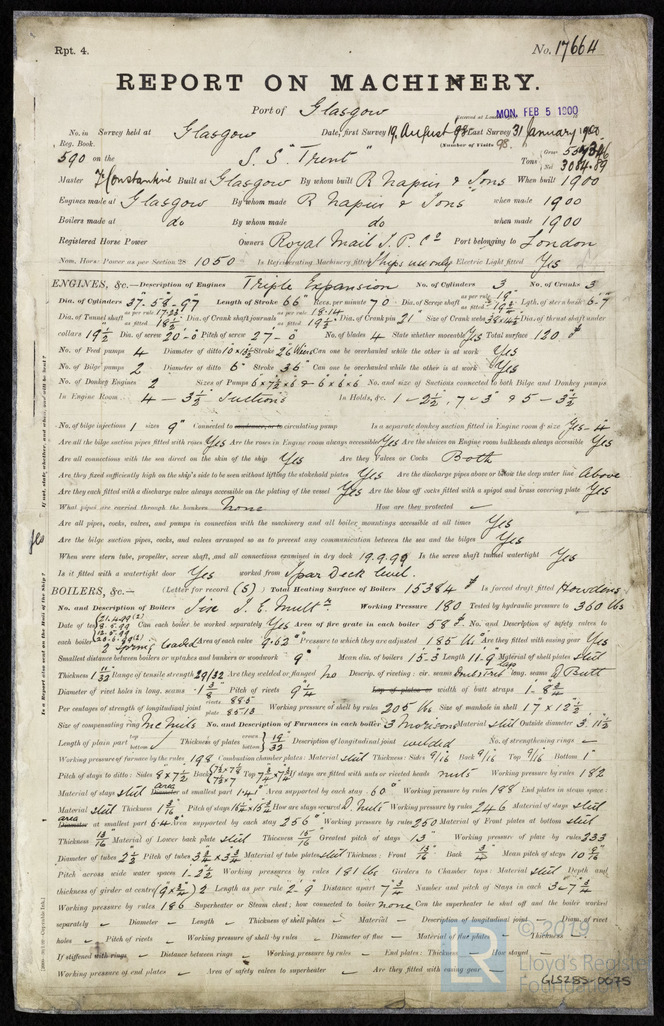 Rpt. 4. No. 17664
REPORT ON MACHINERY.
Port of Glasgow
Received at London MON. FEB 5 1900
No. in Survey held at Glasgow Date, first Survey 19, August '98 Last Survey 31 January 1900
Reg. Book. (Number of Visits 98.
590 on the S. S. "Trent" Tons Gross Net 3084.89
Master Constantine Built at Glasgow By whom built R Napier & Sons When built 1900
Engines made at Glasgow By whom made R Napier & Sons when made 1900
Boilers made at do By whom made do when made 1900
Registered Horse Power Owners Royal Mail S. P. Co Port belonging to London
Nom. Horse Power as per Section 28 1050 Is Refrigerating Machinery fitted Ships use only Electric Light fitted Yes
ENGINES, &c.—Description of Engines Triple Expansion No. of Cylinders 3 No. of Cranks 3
Dia. of Cylinders 37-58-97 Length of Stroke 66" Revs. per minute 70 Dia. of Screw shaft as per rule 19" as fitted Lgth. of stern bush 6-7
Dia. of Tunnel shaft as per rule as fitted 18½" Dia. of Crank shaft journals as per rule 18.14 as fitted 19½" Dia. of Crank pin 21" Size of Crank webs Dia. of thrust shaft under
collars 19½" Dia. of screw 20'-0" Pitch of screw 27'-0" No. of blades 4 State whether moveable Yes Total surface 120
No. of Feed pumps 4 Diameter of ditto Stroke 26 Can one be overhauled while the other is at work Yes
No. of Bilge pumps 2 Diameter of ditto 6" Stroke 36" Can one be overhauled while the other is at work Yes
No. of Donkey Engines 2 Sizes of Pumps 6 x 7½ x 6 & 6 x 6 x 6 No. and size of Suctions connected to both Bilge and Donkey pumps
In Engine Room 4 - 3½" Suctions In Holds, &c. 1-2½, 7-3" & 5-3½
No. of bilge injections 1 sizes 9" Connected to condenser, or to circulating pump Is a separate donkey suction fitted in Engine room & size Yes-4
Are all the bilge suction pipes fitted with roses Yes Are the roses in Engine room always accessible Yes Are the sluices on Engine room bulkheads always accessible Yes
Are all connections with the sea direct on the skin of the ship Yes Are they Valves or Cocks Both
Are they fixed sufficiently high on the ship's side to be seen without lifting the stokehold plates Yes Are the discharge pipes above or below the deep water line above
Are they each fitted with a discharge valve always accessible on the plating of the vessel Yes Are the blow off cocks fitted with a spigot and brass covering plate Yes
What pipes are carried through the bunkers None How are they protected -
Are all pipes, cocks, valves, and pumps in connection with the machinery and all boiler mountings accessible at all times Yes
Are the bilge suction pipes, cocks, and valves arranged so as to prevent any communication between the sea and the bilges Yes
When were stern tube, propeller, screw shaft, and all connections examined in dry dock 19.9.99 Is the screw shaft tunnel watertight Yes
Is it fitted with a watertight door Yes worked from Spar Deck level.
BOILERS, &c.— (Letter for record (S)) Total Heating Surface of Boilers 15384 Is forced draft fitted Howdens
No. and Description of Boilers S. E. Working Pressure 180 Tested by hydraulic pressure to 360 lbs
Date of test Can each boiler be worked separately Yes Area of fire grate in each boiler 58 No. and Description of safety valves to
each boiler 2 Spring loaded Area of each valve 9.62" Pressure to which they are adjusted 185 lbs Are they fitted with easing gear Yes
Smallest distance between boilers or uptakes and bunkers or woodwork 9" Mean dia. of boilers 15-3 Length 11-9 Material of shell plates steel
Thickness 1 11/32 Range of tensile strength 29/32 Are they welded or flanged no Descrip. of riveting: cir. seams lap long. seams D Butt
Diameter of rivet holes in long. seams 1 3/8 Pitch of rivets 9¼ Lap of plates or width of butt straps 1-8¾
Per centages of strength of longitudinal joint rivets 88.5 plate 85.13 Working pressure of shell by rules 205 lbs Size of manhole in shell 17" x 12½"
Size of compensating ring McNeils No. and Description of Furnaces in each boiler 3 Morisons Material steel Outside diameter 3. 11½
Length of plain part top bottom Thickness of plates crown bottom 19/32 Description of longitudinal joint welded No. of strengthening rings -
Working pressure of furnace by the rules 198 Combustion chamber plates: Material steel Thickness: Sides 9/16 Back 9/16 Top 9/16 Bottom 1"
Pitch of stays to ditto: Sides 8 x 7½ Back Top If stays are fitted with nuts or riveted heads nuts Working pressure by rules 182
Material of stays steel area Diameter at smallest part 1.41 Area supported by each stay 60" Working pressure by rules 188 End plates in steam space:
Material steel Thickness Pitch of stays How are stays secured D. Nuts Working pressure by rules 246 Material of stays steel
area Diameter at smallest part 6.4 Area supported by each stay 256" Working pressure by rules 250 Material of Front plates at bottom steel
Thickness 13/16 Material of Lower back plate steel Thickness 15/16 Greatest pitch of stays 13" Working pressure of plate by rules 233
Diameter of tubes 2½ Pitch of tubes 3¾ x 3¾ Material of tube plates steel Thickness: Front 13/16 Back ¾ Mean pitch of stays 10
Pitch across wide water spaces 1-2½ Working pressures by rules 181 lbs Girders to Chamber tops: Material steel Depth and
thickness of girder at centre (9 x ¾) 2 Length as per rule 2-9" Distance apart 7¾ Number and pitch of Stays in each 3-7¾
Working pressure by rules 186 Superheater or Steam chest; how connected to boiler none Can the superheater be shut off and the boiler worked
separately - Diameter - Length - Thickness of shell plates - Material - Description of longitudinal joint - Diam. of rivet
holes - Pitch of rivets - Working pressure of shell by rules - Diameter of flue - Material of flue plates - Thickness -
If stiffened with rings - Distance between rings - Working pressure by rules - End plates: Thickness - How stayed -
Working pressure of end plates - Area of safety valves to superheater - Are they fitted with easing gear -
yes
© 2019
LR
Lloyd's Register
Foundation
GLS285-0075